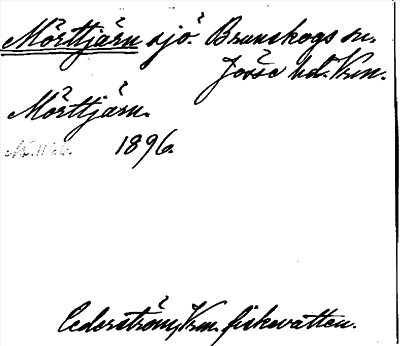 Mörttjärn sjö. Brunskogs sn.
Jösse hd. Vrm.
Mörttjärn.
1896.
Cederström, Vrm. fiskevatten.